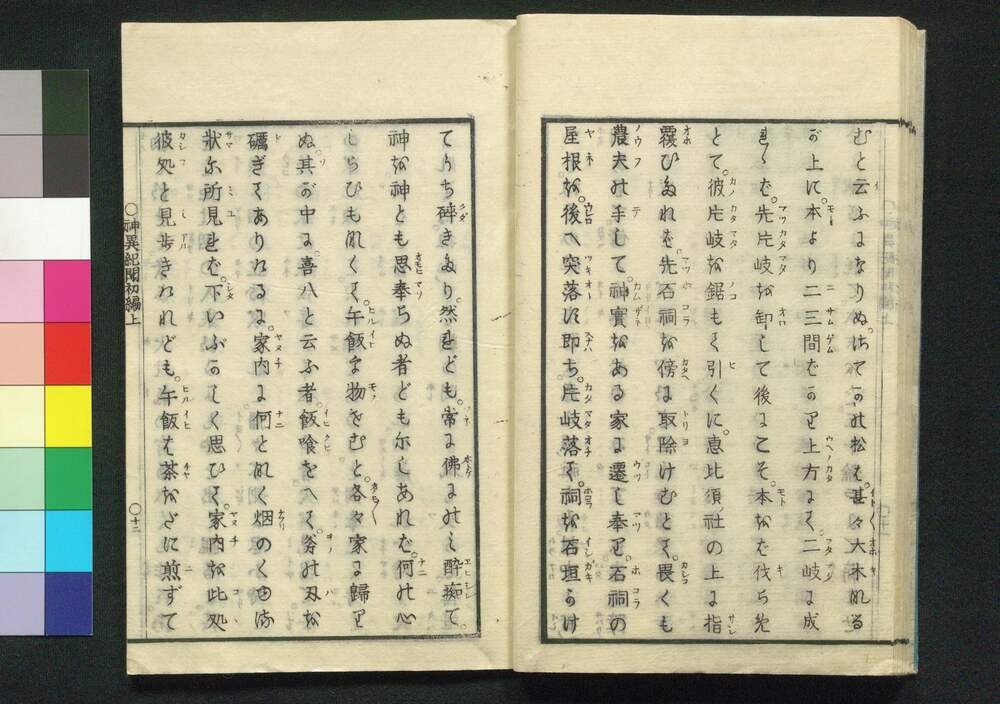 むと云ふになりぬ。はてかの松は。甚々大木なる
が上に。本より二三間ばかり上方にて。二岐に成
れゝば。先片岐を卸して後にこそ。本をば伐らめ
とて。彼片岐を鋸もて引くに。恵比須社の上に指
覆ひたれば。先石祠を傍に取除けむとて。畏くも
農夫の手して。神實をある家に遷し奉り。石祠の
屋根を。後へ突落に即ち。片岐落て。祠を石垣うけ
てうち碎きたり。然れども。常に佛にのみ酔痴て。
神を神とも思奉ちぬ者どもにしあれば。何の心
しらひもなくて。午飯まゐ物せむと。各々家に歸り
ぬ。其が中に。喜八と云ふ者。飯喰をへて。斧の刄を
礪ぎてありけるに。家内に何となく烟のくゆる
狀に所見れば。下いぶかしく思ひて。家内を此処
彼処と見歩きけれども。午飯は茶などに煎ずて
〇神異紀聞初編上
〇十二